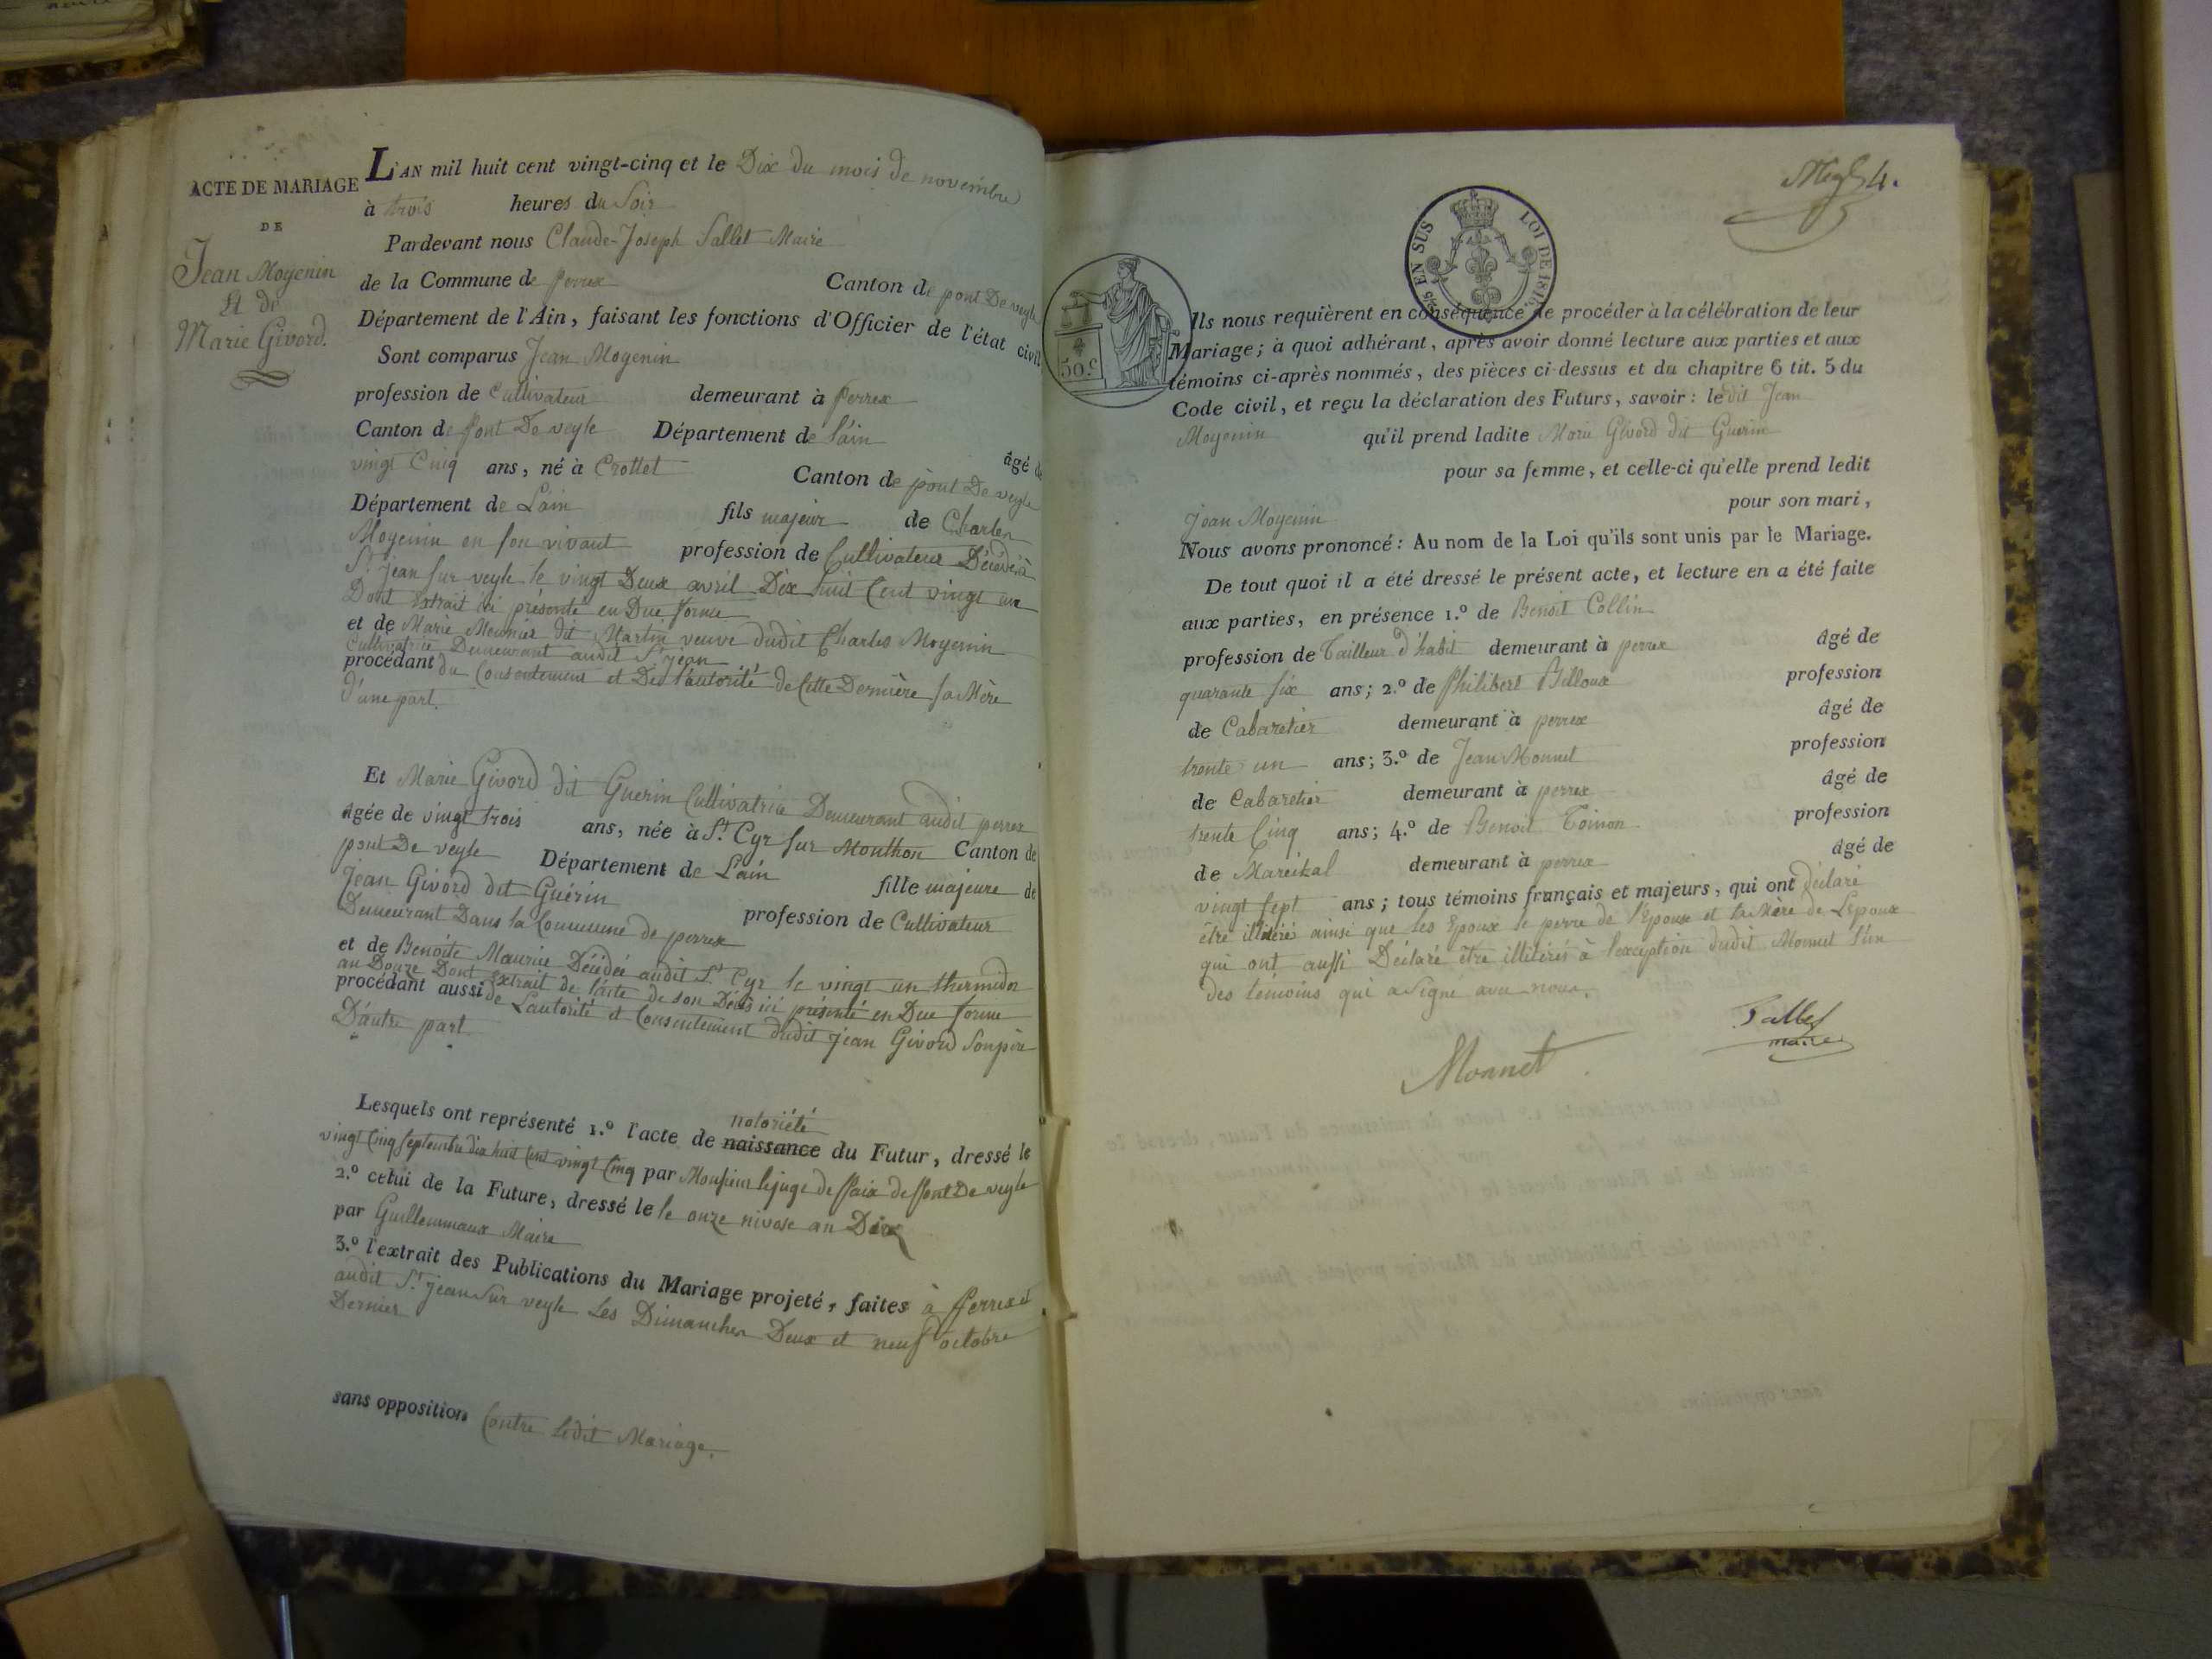 ACTE DE MARIAGE
DE
Jean Moyenin
Et de
Marie Givord.
L'AN mil huit cent vingt-cinq et le Dix du mois de novembre
à trois heures du Soir
Pardevant nous Claude-Joseph Sallet Maire
de la Commune de perrex Canton de pont De veyle
Département de l'Ain, faisant les fonctions d'Officier de l'état civil
Sont comparus Jean Moyenin
profession de Cultivateur demeurant à perrex
Canton de Pont De veyle Département de L'ain âgé de
vingt Cinq ans, né à Crottet Canton de pont De veyle
Département de L'ain fils majeur de Charles
Moyenin en son vivant profession de Cultivateur Décédé à
St. Jean sur veyle le vingt Deux avril Dix huit Cent vingt un
Dont Extrait ici présenté en Due forme
et de Marie Meunier dit Martin veuve dudit Charles Moyenin
Cultivatrice Demeurant audit St. jean
procédant du Consentement et De l'autorité de Cette Dernière sa Mère
D'une part.
Et Marie Givord dit Guerin Cultivatrice Demeurant audit perrex
âgée de vingt trois ans, née à St. Cyr sur Monthon Canton de
pont De veyle Département de L'ain fille majeure de
Jean Givord dit Guérin profession de Cultivateur
Demeurant Dans la Commune de perrex
et de Benoite Maurice Décédée audit St. Cyr le vingt un thermidor
an Douze Dont extrait de l'acte de son Décès ici présenté en Due forme
procédant aussi de L'autorité et Consentement dudit Jean Givord Son père
D'autre part
Lesquels ont représenté 1.º l'acte de naissance notoriété du Futur, dressé le
vingt Cinq septembre dix huit Cent vingt Cinq par Monsieur le juge de Paix de Pont De veyle
2.º celui de la Future, dressé le le onze nivose an Dix
par Guillermaux Maire
3.º l'extrait des Publications du Mariage projeté, faites à Perrex et
audit St. jean Sur veyle Les Dimanches Deux et neuf octobre
Dernier
sans opposition Contre ledit Mariage.
4.
2/5 EN SUS LOI DE 1816.
50.c
Ils nous requièrent en conséquence de procéder à la célébration de leur
Mariage; à quoi adhérant, après avoir donné lecture aux parties et aux
témoins ci-après nommés, des pièces ci-dessus et du chapitre 6 tit. 5 du
Code civil, et reçu la déclaration des Futurs, savoir: ledit Jean
Moyenin qu'il prend ladite Marie Givord dit Guerin
pour sa femme, et celle-ci qu'elle prend ledit
Jean Moyenin pour son mari,
Nous avons prononcé: Au nom de la Loi qu'ils sont unis par le Mariage.
De tout quoi il a été dressé le présent acte, et lecture en a été faite
aux parties, en présence 1.º de Benoit Collin
profession de Tailleur d'habit demeurant à perrex âgé de
quarante six ans; 2.º de Philibert Billoux profession
de Cabaretier demeurant à perrex âgé de
trente un ans; 3.º de Jean Monnet profession
de Cabaretier demeurant à perrex âgé de
trente Cinq ans; 4.º de Benoit Toinon profession
de Mareikal demeurant à perrex âgé de
vingt sept ans; tous témoins français et majeurs, qui ont déclaré
être illitérés ainsi que les Epoux le perre de l'Epouse et la Mère de L'epoux
qui ont aussi Déclaré être illitérés à l'exception dudit Monnet l'un
des témoins qui a Signé avec nous.
Sallet
maire
Monnet